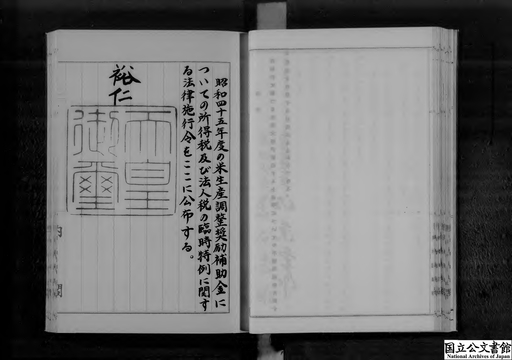 昭和四十五年度の米生産調整奨励補助金に
ついての所得税及び法人税の臨時特例に関す
る法律施行令をここに公布する。
裕仁
天皇
御璽
国立公文書館
National Archives of Japan